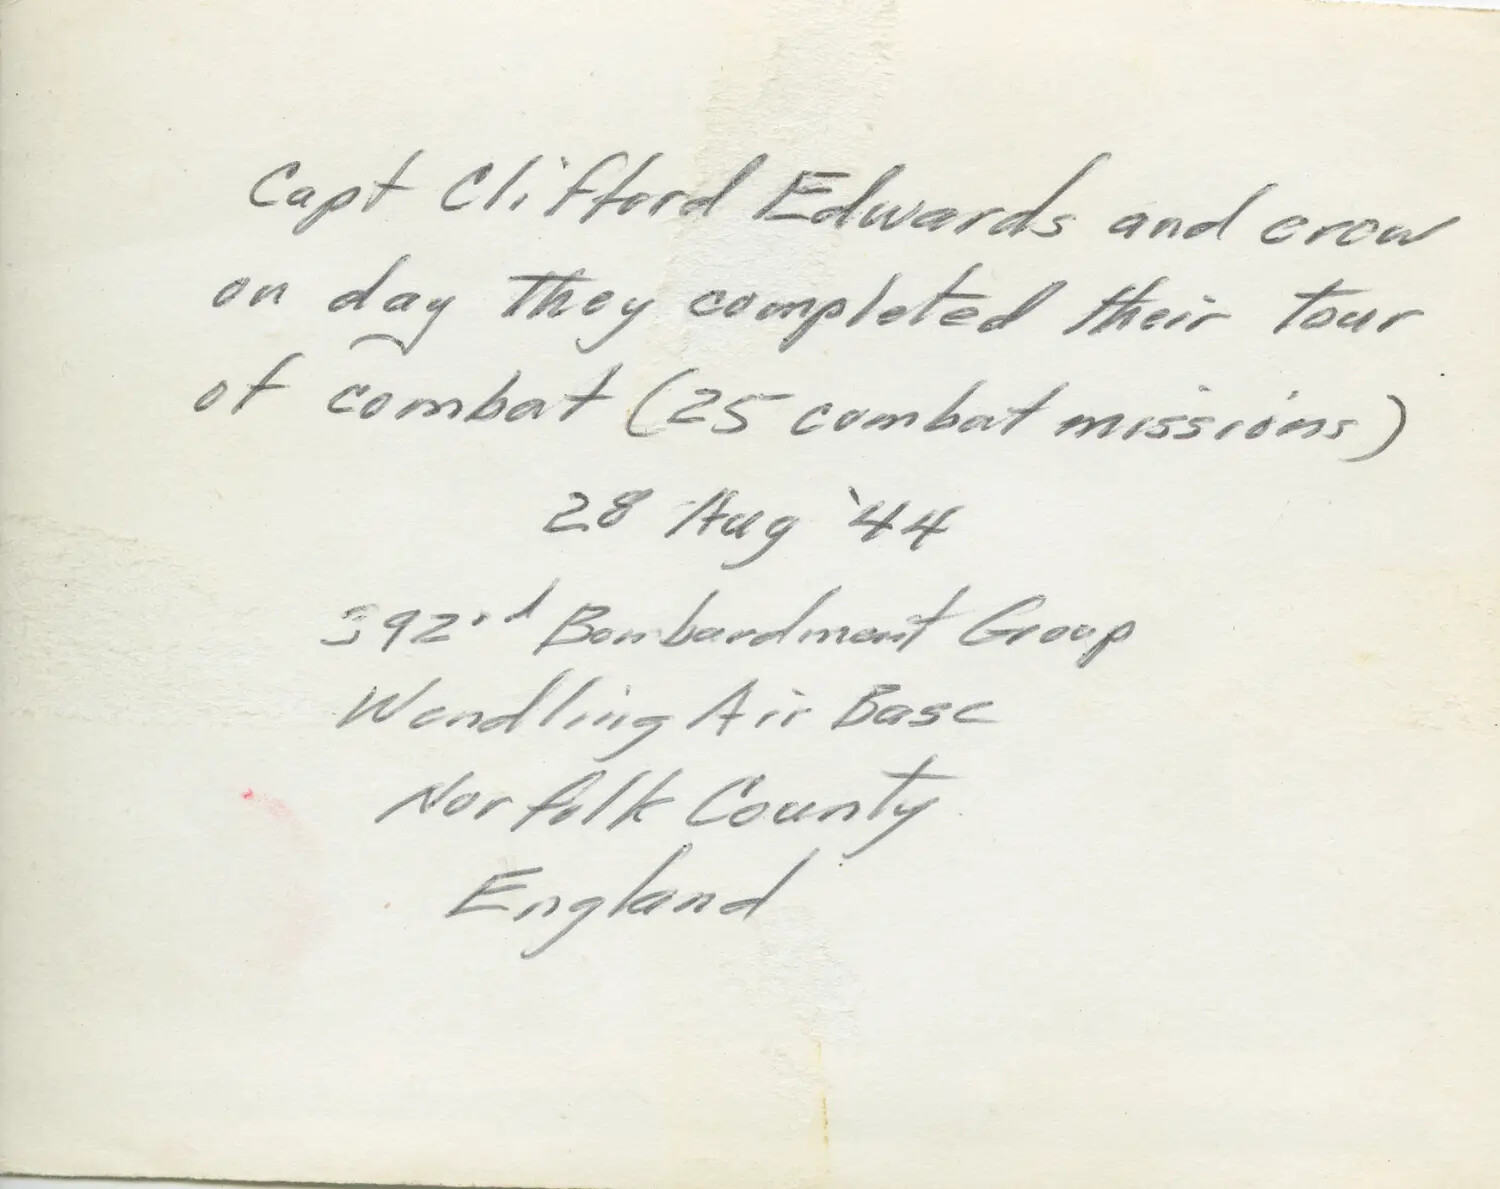 Capt Clifford Edwards and crew
on day they completed their tour
of combat (25 combat missions)
28 Aug '44
392nd Bombardment Group
Wendling Air Base
Norfolk County
England